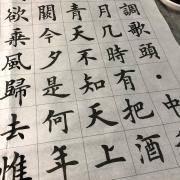 調歌頭·中
月几時有把酒
青天不知天上
闕今夕是何年
欲乘風歸去惟